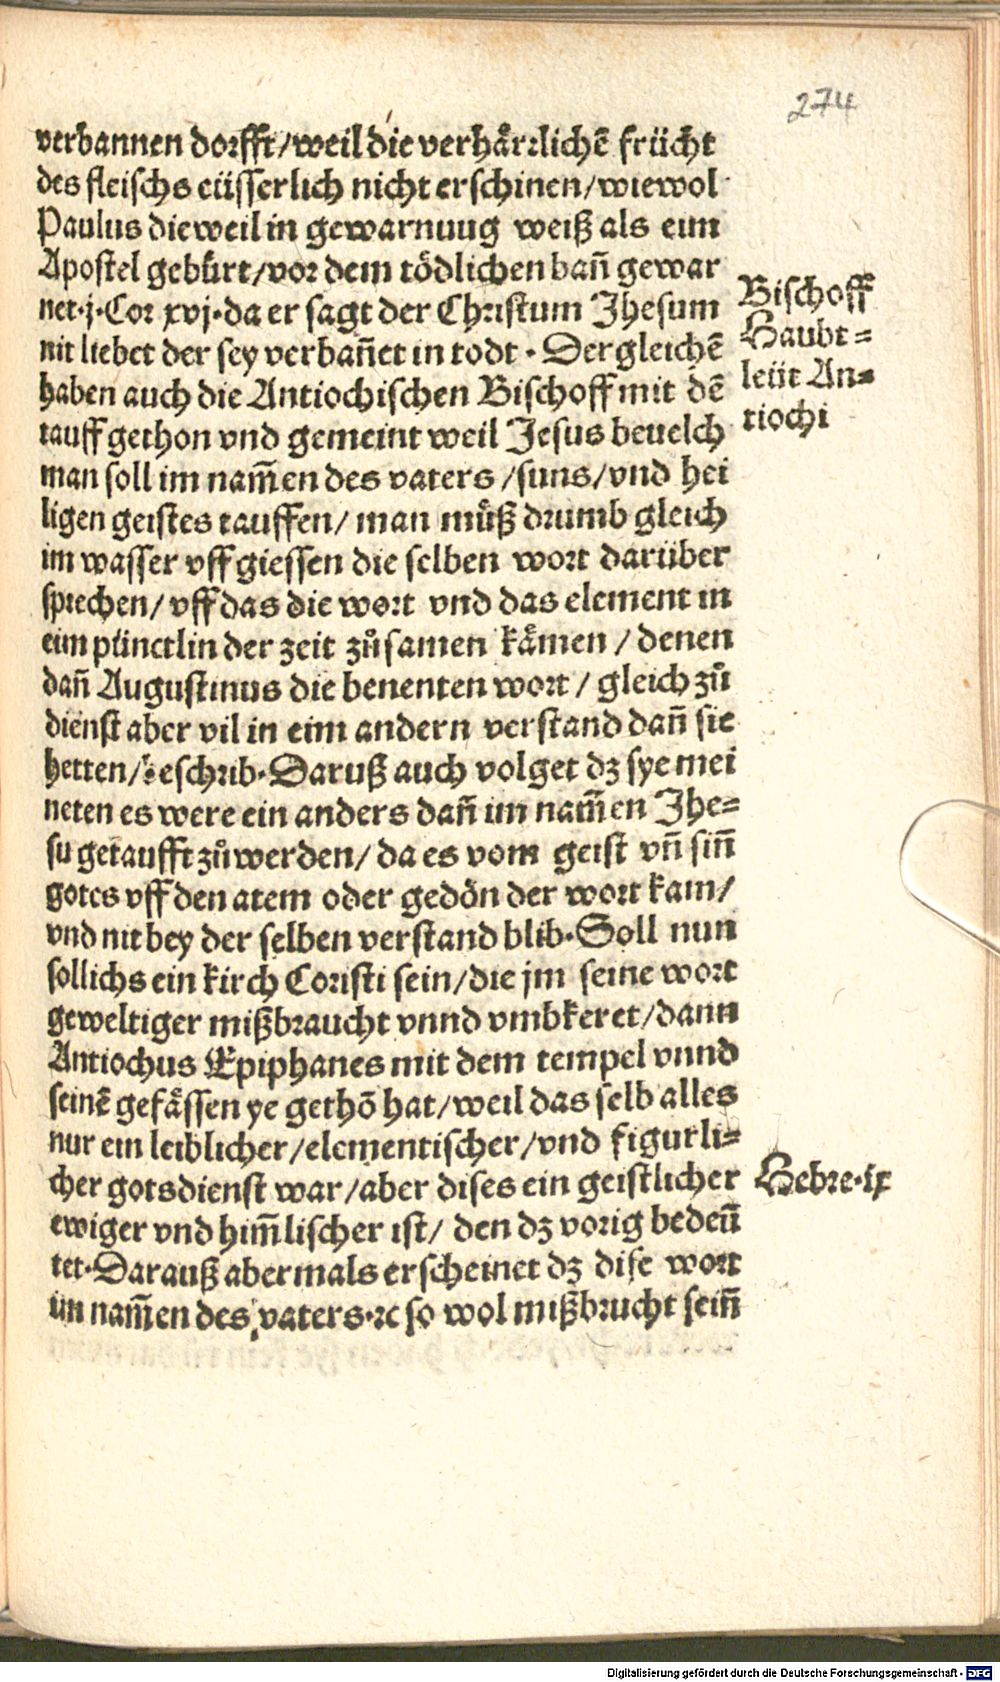 274
verbannen dorfft/weil die verhaͤrꝛlichē frücht
des fleischs eüsserlich nicht erschinen/wiewol
Paulus dieweil in gewarnuug weiß als eim
Apostel gebürt/vor dem tödlichen bañ gewar
net.j.Cor xvj.da er sagt der Christum Jhesum
nit liebet der sey verbañet in todt. Der gleichē
haben auch die Antiochischen Bischoff mit dē
tauff gethon vnd gemeint weil Jesus beuelch
man soll im nam̄en des vaters/suns/vnd hei
ligen geistes tauffen/ man muͤß drumb gleich
im wasser vff giessen die selben wort darüber
sprechen/ vff das die wort vnd das element in
eim pünctlin der zeit zuͦ samen kaͤmen / denen
dañ Augustinus die benenten wort / gleich zuͦ
dienst aber vil in eim andern verstand dañ sie
hetten/beschrib. Daruß auch volget dz sye mei
neten es were ein anders dañ im nam̄en Jhe=
su getaufft zuͦ werden/ da es vom geist vñ siñ
gotes vff den atem oder gedön der wort kam/
vnd nit bey der selben verstand blib. Soll nun
sollichs ein kirch Coristi sein/die jm seine wort
geweltiger mißbraucht vnnd vmbkeret/dann
Antiochus Epiphanes mit dem tempel vnnd
seinē gefaͤssen ye gethō hat/weil das selb alles
nur ein leiblicher/elementischer/vnd figurli=
cher gotsdienst war/aber dises ein geistlicher
ewiger vnd him̄lischer ist/ den dz vorig bedeü
tet. Darauß abermals erscheinet dz dise wort
im nam̄en des vaters.ꝛc so wol mißbrucht seiñ
Bischoff
Haubt=
leüt An=
tiochi
Hebre.ix
Digitalisierung gefördert durch die Deutsche Forschungsgemeinschaft - DFG